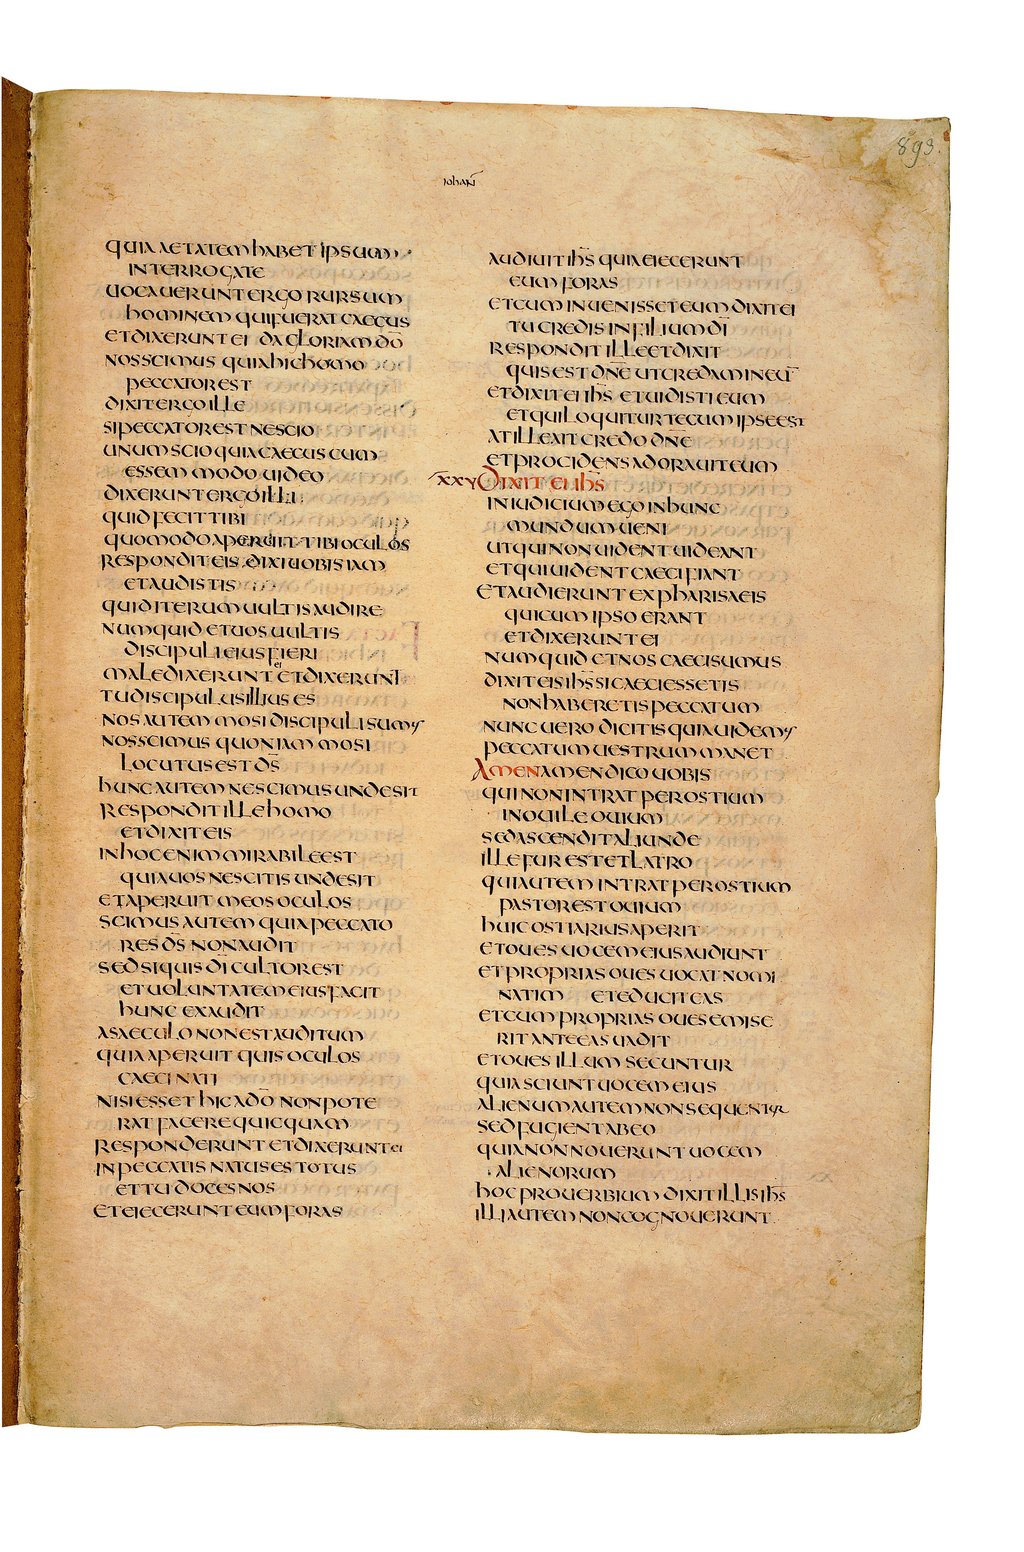 893.
iohan̄
QUIA AETATEM HABET IPSUM
INTERROGATE
UOCAUERUNT ERGO RURSUM
HOMINEM QUI FUERAT CAECUS
ET DIXERUNT EI DA GLORIAM D̄O
NOS SCIMUS QUIA HIC HOMO
PECCATOR EST
DIXIT ERGO ILLE
SI PECCATOR EST NESCIO
UNUM SCIO QUIA CAECUS CUM
ESSEM MODO UIDEO
DIXERUNT ERGO ILLI
QUID FECIT TIBI
QUOMODO APERUIT TIBI OCULOS
RESPONDIT EIS DIXI UOBIS IAM
ET AUDISTIS
QUID ITERUM UULTIS AUDIRE
NUMQUID ET UOS UULTIS
DISCIPULI EIUS FIERI
MALEDIXERUNT EI ET DIXERUNT
TU DISCIPULUS ILLIUS ES
NOS AUTEM MOSI DISCIPULI SUMUS
NOS SCIMUS QUONIAM MOSI
LOCUTUS EST D̄S
HUNC AUTEM NESCIMUS UNDE SIT
RESPONDIT ILLE HOMO
ET DIXIT EIS
IN HOC ENIM MIRABILE EST
QUIA UOS NESCITIS UNDE SIT
ET APERUIT MEOS OCULOS
SCIMUS AUTEM QUIA PECCATO
RES D̄S NON AUDIT
SED SI QUIS D̄I CULTOR EST
ET UOLUNTATEM EIUS FACIT
HUNC EXAUDIT
A SAECULO NON EST AUDITUM
QUIA APERUIT QUIS OCULOS
CAECI NATI
NISI ESSET HIC A D̄O NON POTE
RAT FACERE QUICQUAM
RESPONDERUNT ET DIXERUNT EI
IN PECCATIS NATUS ES TOTUS
ET TU DOCES NOS
ET EIECERUNT EUM FORAS
AUDIUIT IH̄S QUIA EIECERUNT
EUM FORAS
ET CUM INUENISSET EUM DIXIT EI
TU CREDIS IN FILIUM D̄I
RESPONDIT ILLE ET DIXIT
QUIS EST D̄NE UT CREDAM IN EŪ
ET DIXIT EI IH̄S ET UIDISTI EUM
ET QUI LOQUITUR TECUM IPSE EST
AT ILLE AIT CREDO D̄NE
ET PROCIDENS ADORAUIT EUM
XXXV DIXIT EI IH̄S
IN IUDICIUM EGO IN HUNC
MUNDUM UENI
UT QUI NON UIDENT UIDEANT
ET QUI UIDENT CAECI FIANT
ET AUDIERUNT EX PHARISAEIS
QUI CUM IPSO ERANT
ET DIXERUNT EI
NUMQUID ET NOS CAECI SUMUS
DIXIT EIS IH̄S SI CAECI ESSETIS
NON HABERETIS PECCATUM
NUNC UERO DICITIS QUIA UIDEMUS
PECCATUM UESTRUM MANET
AMEN AMEN DICO UOBIS
QUI NON INTRAT PER OSTIUM
IN OUILE OUIUM
SED ASCENDIT ALIUNDE
ILLE FUR EST ET LATRO
QUI AUTEM INTRAT PER OSTIUM
PASTOR EST OUIUM
HUIC OSTIARIUS APERIT
ET OUES UOCEM EIUS AUDIUNT
ET PROPRIAS OUES UOCAT NOMI
NATIM ET EDUCIT EAS
ET CUM PROPRIAS OUES EMISE
RIT ANTE EAS UADIT
ET OUES ILLUM SECUNTUR
QUIA SCIUNT UOCEM EIUS
ALIENUM AUTEM NON SEQUENTUR
SED FUGIENT AB EO
QUIA NON NOUERUNT UOCEM
ALIENORUM
HOC PROUERBIUM DIXIT ILLIS IH̄S
ILLI AUTEM NON COGNOUERUNT